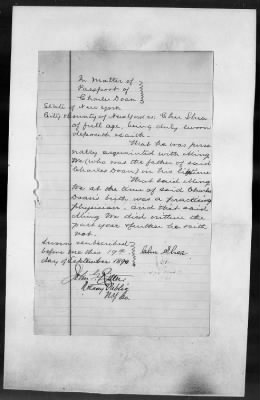 In Matter of
Passport of
Charles Doan
State of New York
City & County of New York ss: Chu Shea
of full age, being duly sworn
deposeth & saith.
That he was perso-
nally acquainted with Ming
Wo (who was the father of said
Charles Doan) in his lifetime
That said Ming
Wo at the time of said Charles
Doan's birth was a practicing
physician. and that said
Ming Wo died within the
past year & further he saith
not.
Sworn & subscribed
before me this 19th
day of September 1890
John
Notary Public
N.Y. Co.